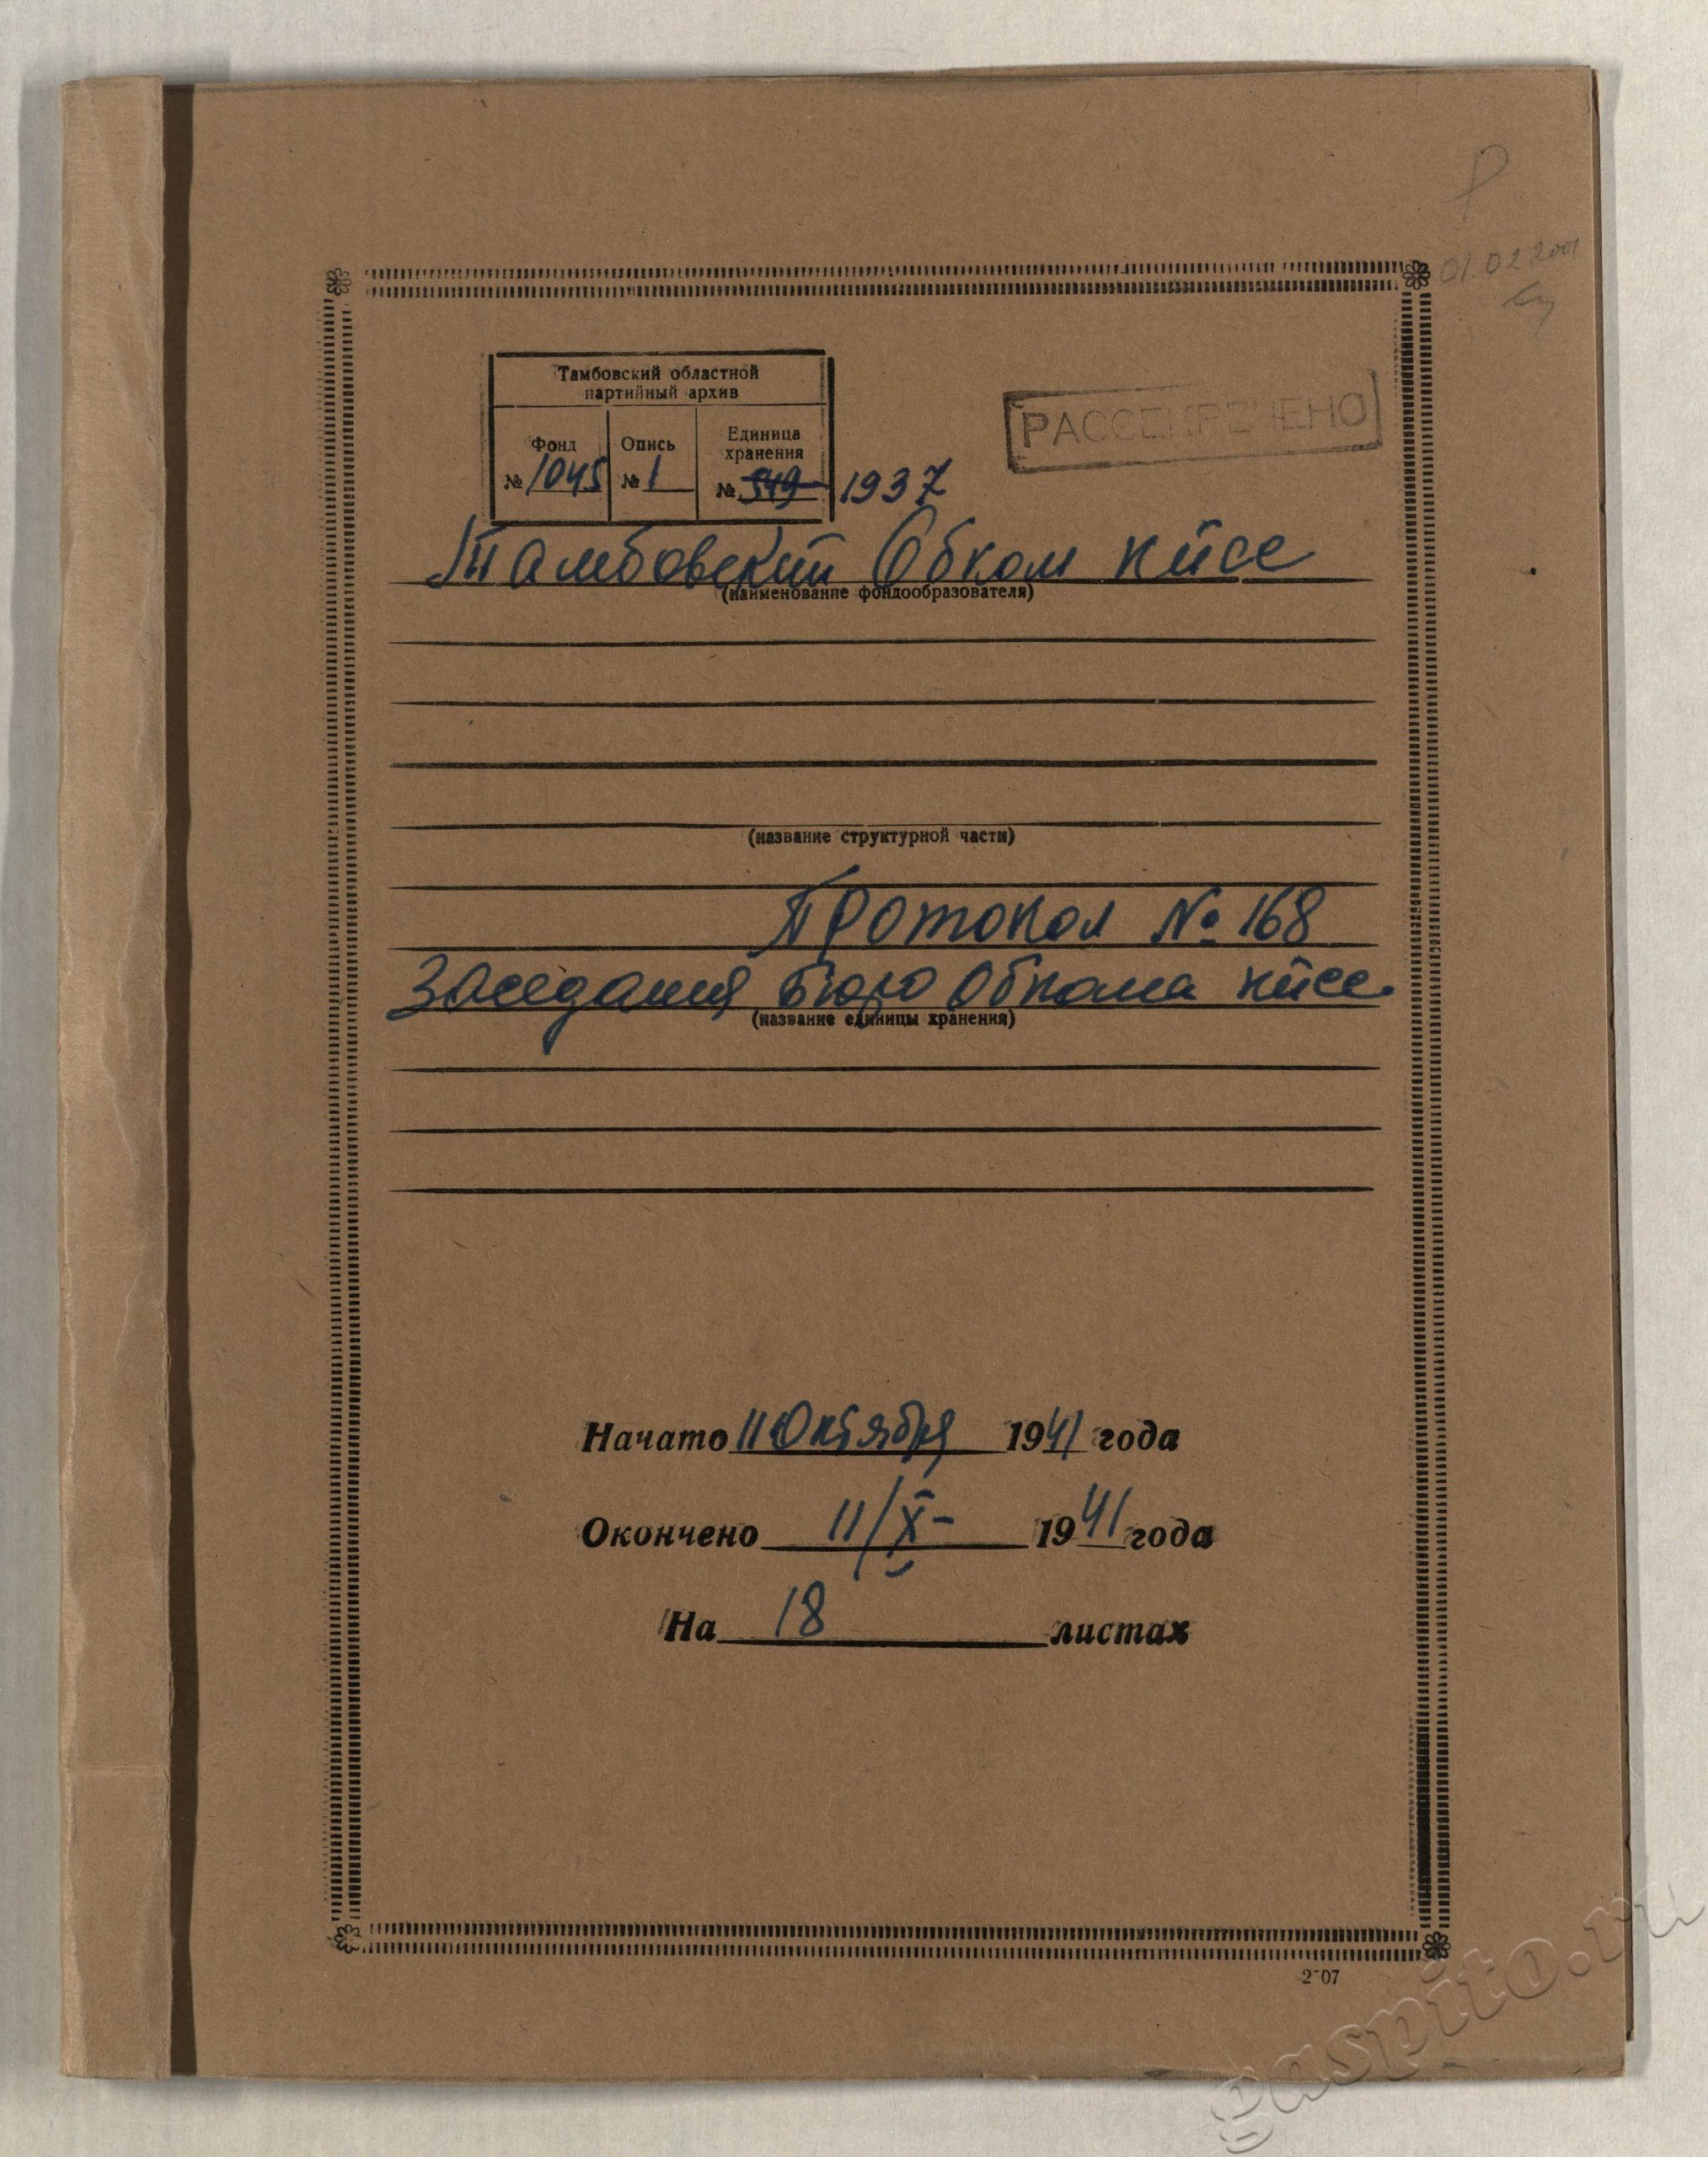 Р
01.02.2001
Тамбовский областной
партийный архив
РАССЕКРЕЧЕНО
Фонд Опись Единица хранения
№ 1045 № 1 № 549 1937
Тамбовский Обком КПСС
(наименование фондообразователя)
(название структурной части)
Протокол № 168
Заседания бюро Обкома КПСС.
(название единицы хранения)
Начато 11 Октября 1941 года
Окончено 11/X- 1941 года
На 18 листах
2-07
gaspito.ru